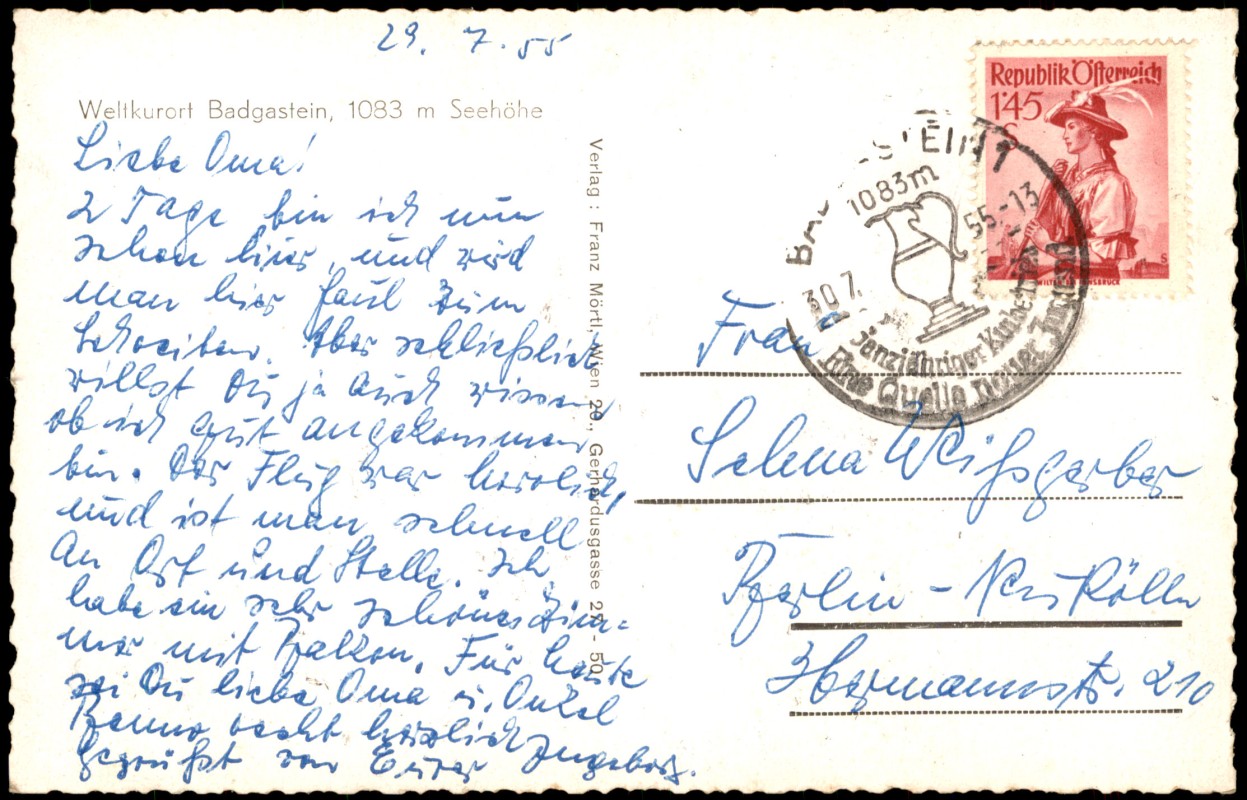 29. 7. 55
Weltkurort Badgastein, 1083 m Seehöhe
Liebe Oma!
2 Tage bin ich nun
schon hier, und wird
man hier faul zum
Schreiben. Aber schließlich
willst Du ja auch wissen
ob ich gut angekommen
bin. Der Flug war herrlich,
und ist man schnell
an Ort und Stelle. Ich
habe ein sehr schönes Zim=
mer mit Balkon. Für heute
sei Du liebe Oma u. Onkel
Benno recht herzlich
gegrüßt von Eurer Ingeborg.
Verlag: Franz Mörtl, Wien 20., Gerhardusgasse 27 - 50
Republik Österreich
1'45
S
WILTEN BEI INNSBRUCK
STEIN 1
1083m
30.7. 55.-13
Eine Quelle Jugend
Frau
Selma Weißgerber
Berlin-Neukölln
Hermannstr. 210